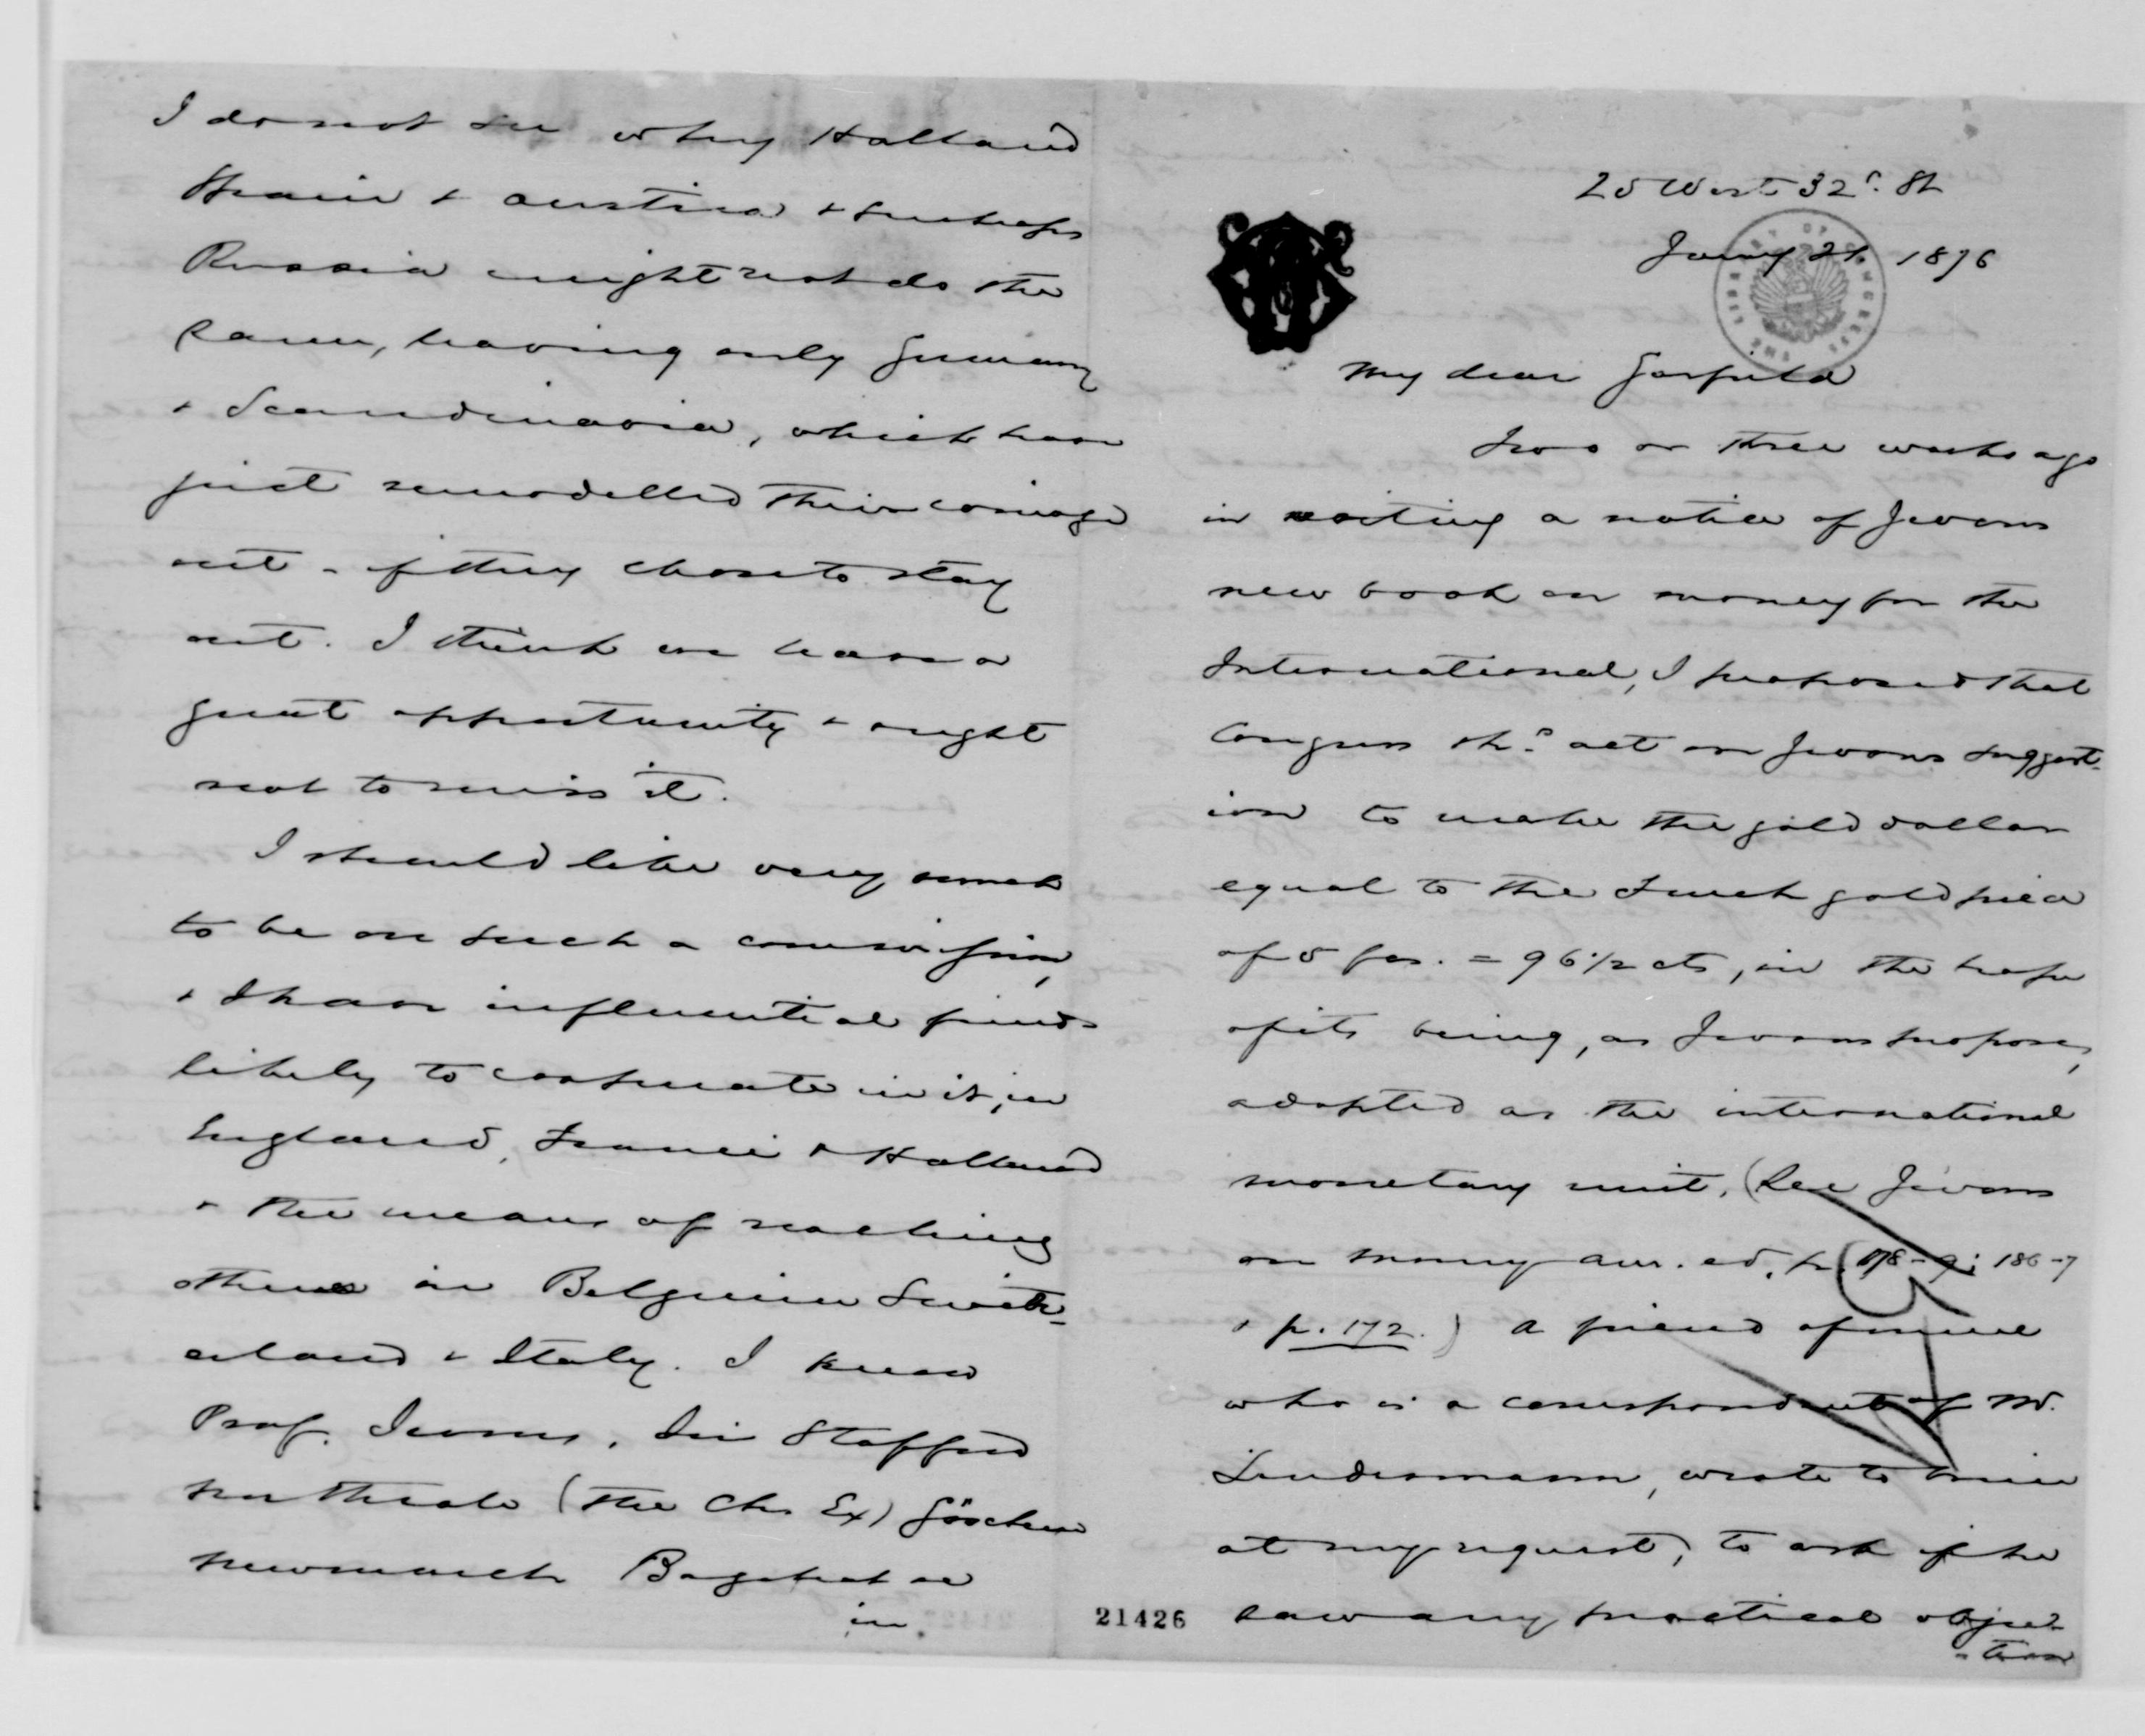 I do not see why Holland
Spain & Austria & perhaps
Russia might not do the
same, leaving only Germany
& Scandinavia, which have
just remodelled their coinage
out - if they chose to stay
out. I think we have a
great opportunity & ought
not to miss it.
I should like very much
to be on such a commission,
& I have influential friends
likely to cooperate in it, in
England, France & Holland
& the means of reaching
others in Belgium Switz-
erland & Italy. I know
Prof. Jevons, Sir Stafford
Northcote (the Ch. Ex) Göschen
Newmarch Bagehot
in
25 West 32d. St
Jany 21. 1876
THE LIBRARY OF CONGRESS
My dear Garfield
Two or three weeks ago
in writing a notice of Jevons
new book on money for the
International, I proposed that
Congress shd. act on Jevons suggest-
ion to make the gold dollar
equal to the French gold piece
of 5 fcs. = 96 1/2 cts, in the hope
of its being, as Jevons proposes,
adopted as the international
monetary unit. (See Jevons
on Money am. ed. p. 178-9; 186-7
& p. 172.) A friend of mine
who is a correspondent of Mr.
Lindermann, wrote to him
at my request, to ask if he
saw any practical objec-
-tion
21426